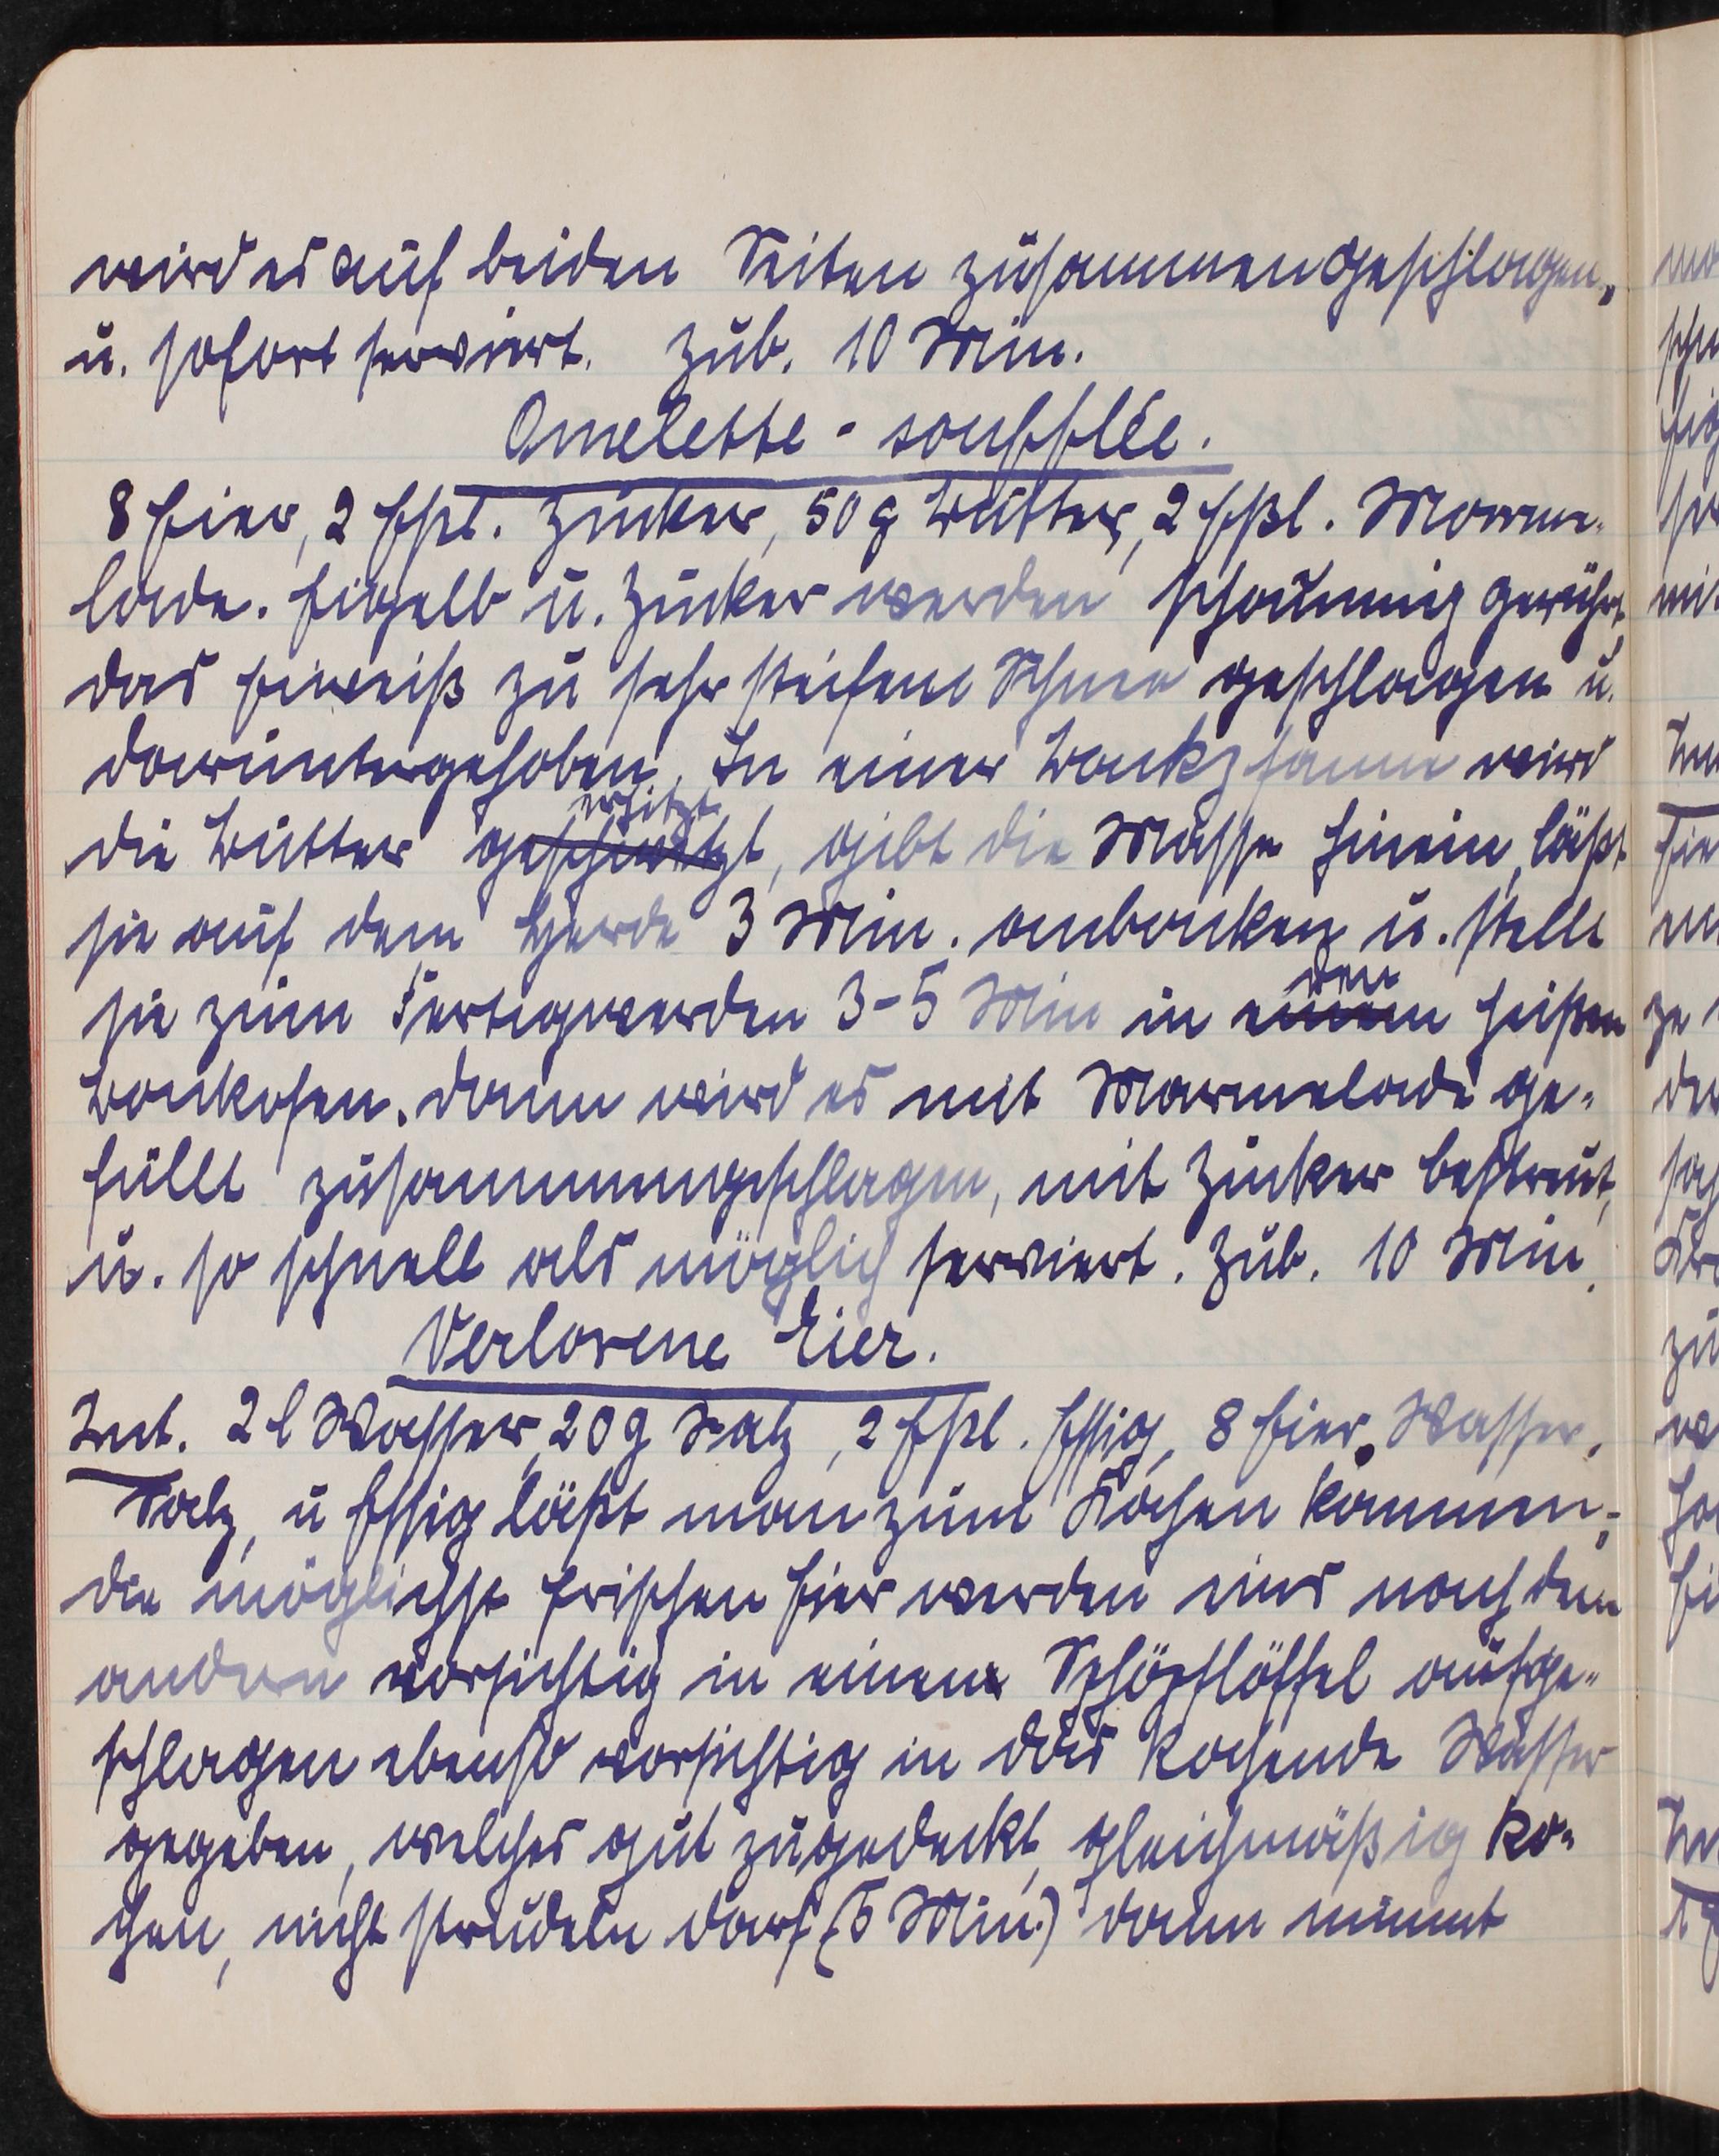 wird es auf beiden Seiten zusammengeschlagen,
u. sofort serviert. Zub. 10 Min.
Omelette - soufflée.
8 Eier, 2 Eßl. Zucker, 50 g Butter, 2 Eßl. Marme-
lade. Eigelb u. Zucker werden schaumig gerührt,
das Eiweiß zu sehr steifem Schnee geschlagen u.
daruntergehoben. In einer Backpfanne wird
erhitzt
die Butter, gibt die Masse hinein, läßt
sie auf dem Herde 3 Min. anbacken u. stellt
den
sie zum Fertigwerden 3-5 Min in einen heißen
Backofen. Dann wird es mit Marmelade ge-
füllt zusammengeschlagen, mit Zucker bestreut,
u. so schnell als möglich serviert. Zub. 10 Min.
Verlorene Eier.
Zut. 2 l Wasser, 20 g Salz, 2 Eßl. Essig, 8 Eier. Wasser,
Salz, u Essig läßt man zum Kochen kommen;
die möglichst frischen Eier werden eins nach dem
andern vorsichtig in einem Schöpflöffel aufge-
schlagen ebenso vorsichtig in das kochende Wasser
gegeben, welches gut zugedeckt, gleichmäßig ko-
chen, nicht strudeln darf (5 Min.) dann nimmt